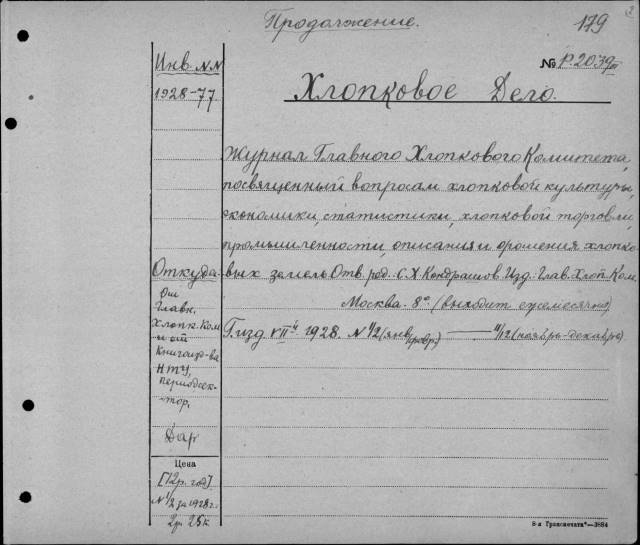 Продолжение.
179
2
Инв. №№
№ Р.2039
1928-77.
Хлопковое Дело.
Журнал Главного Хлопкового Комитета,
посвященный вопросам хлопковой культуры,
экономики, статистики, хлопковой торговли,
промышленности, описания и орошения хлопко-
Откуда
вых земель Отв. ред. С. Х. Кондрашов Изд. Глав. Хлоп. Ком.
От
Москва. 8° (выходит ежемесячно)
Главн.
Хлопк. Ком
Г. изд. VII й. 1928. № 1/2 (янв. февр.) — 11/12 (ноябрь-декабрь)
и от
Книгоизд-ва
НТУ,
периодсек-
тор,
Дар
Цена
[12 р. год]
№ 1/2 за 1928 г.
2 р. 25 к
8-я Транспечать"—3884